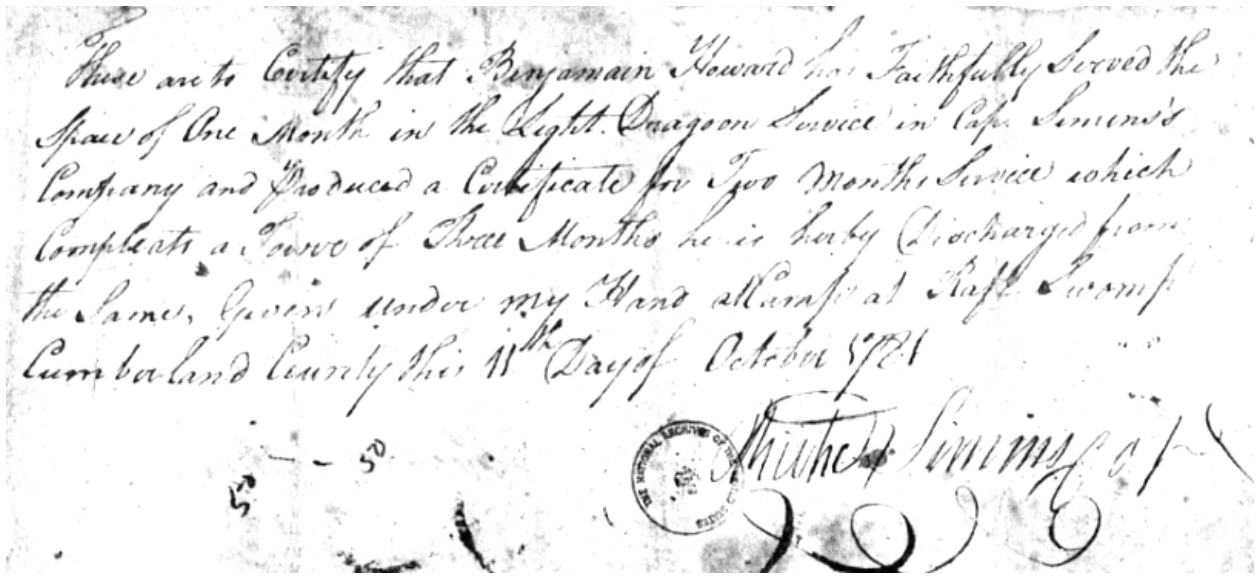 These are to Certify that Benjamain Howard has Faithfully Served the
Space of One Month in the Light Dragoon Service in Cap. Simins's
Company and Produced a Certificate for Two Months Service which
Compleats a Towre of Three Months he is herby Discharged from
the Same, Given under my Hand at Camp at Raft Swomp
Cumberland County this 11th Day of October 1781
Simins Cap
50 - - 50
THE NATIONAL ARCHIVES OF THE UNITED STATES